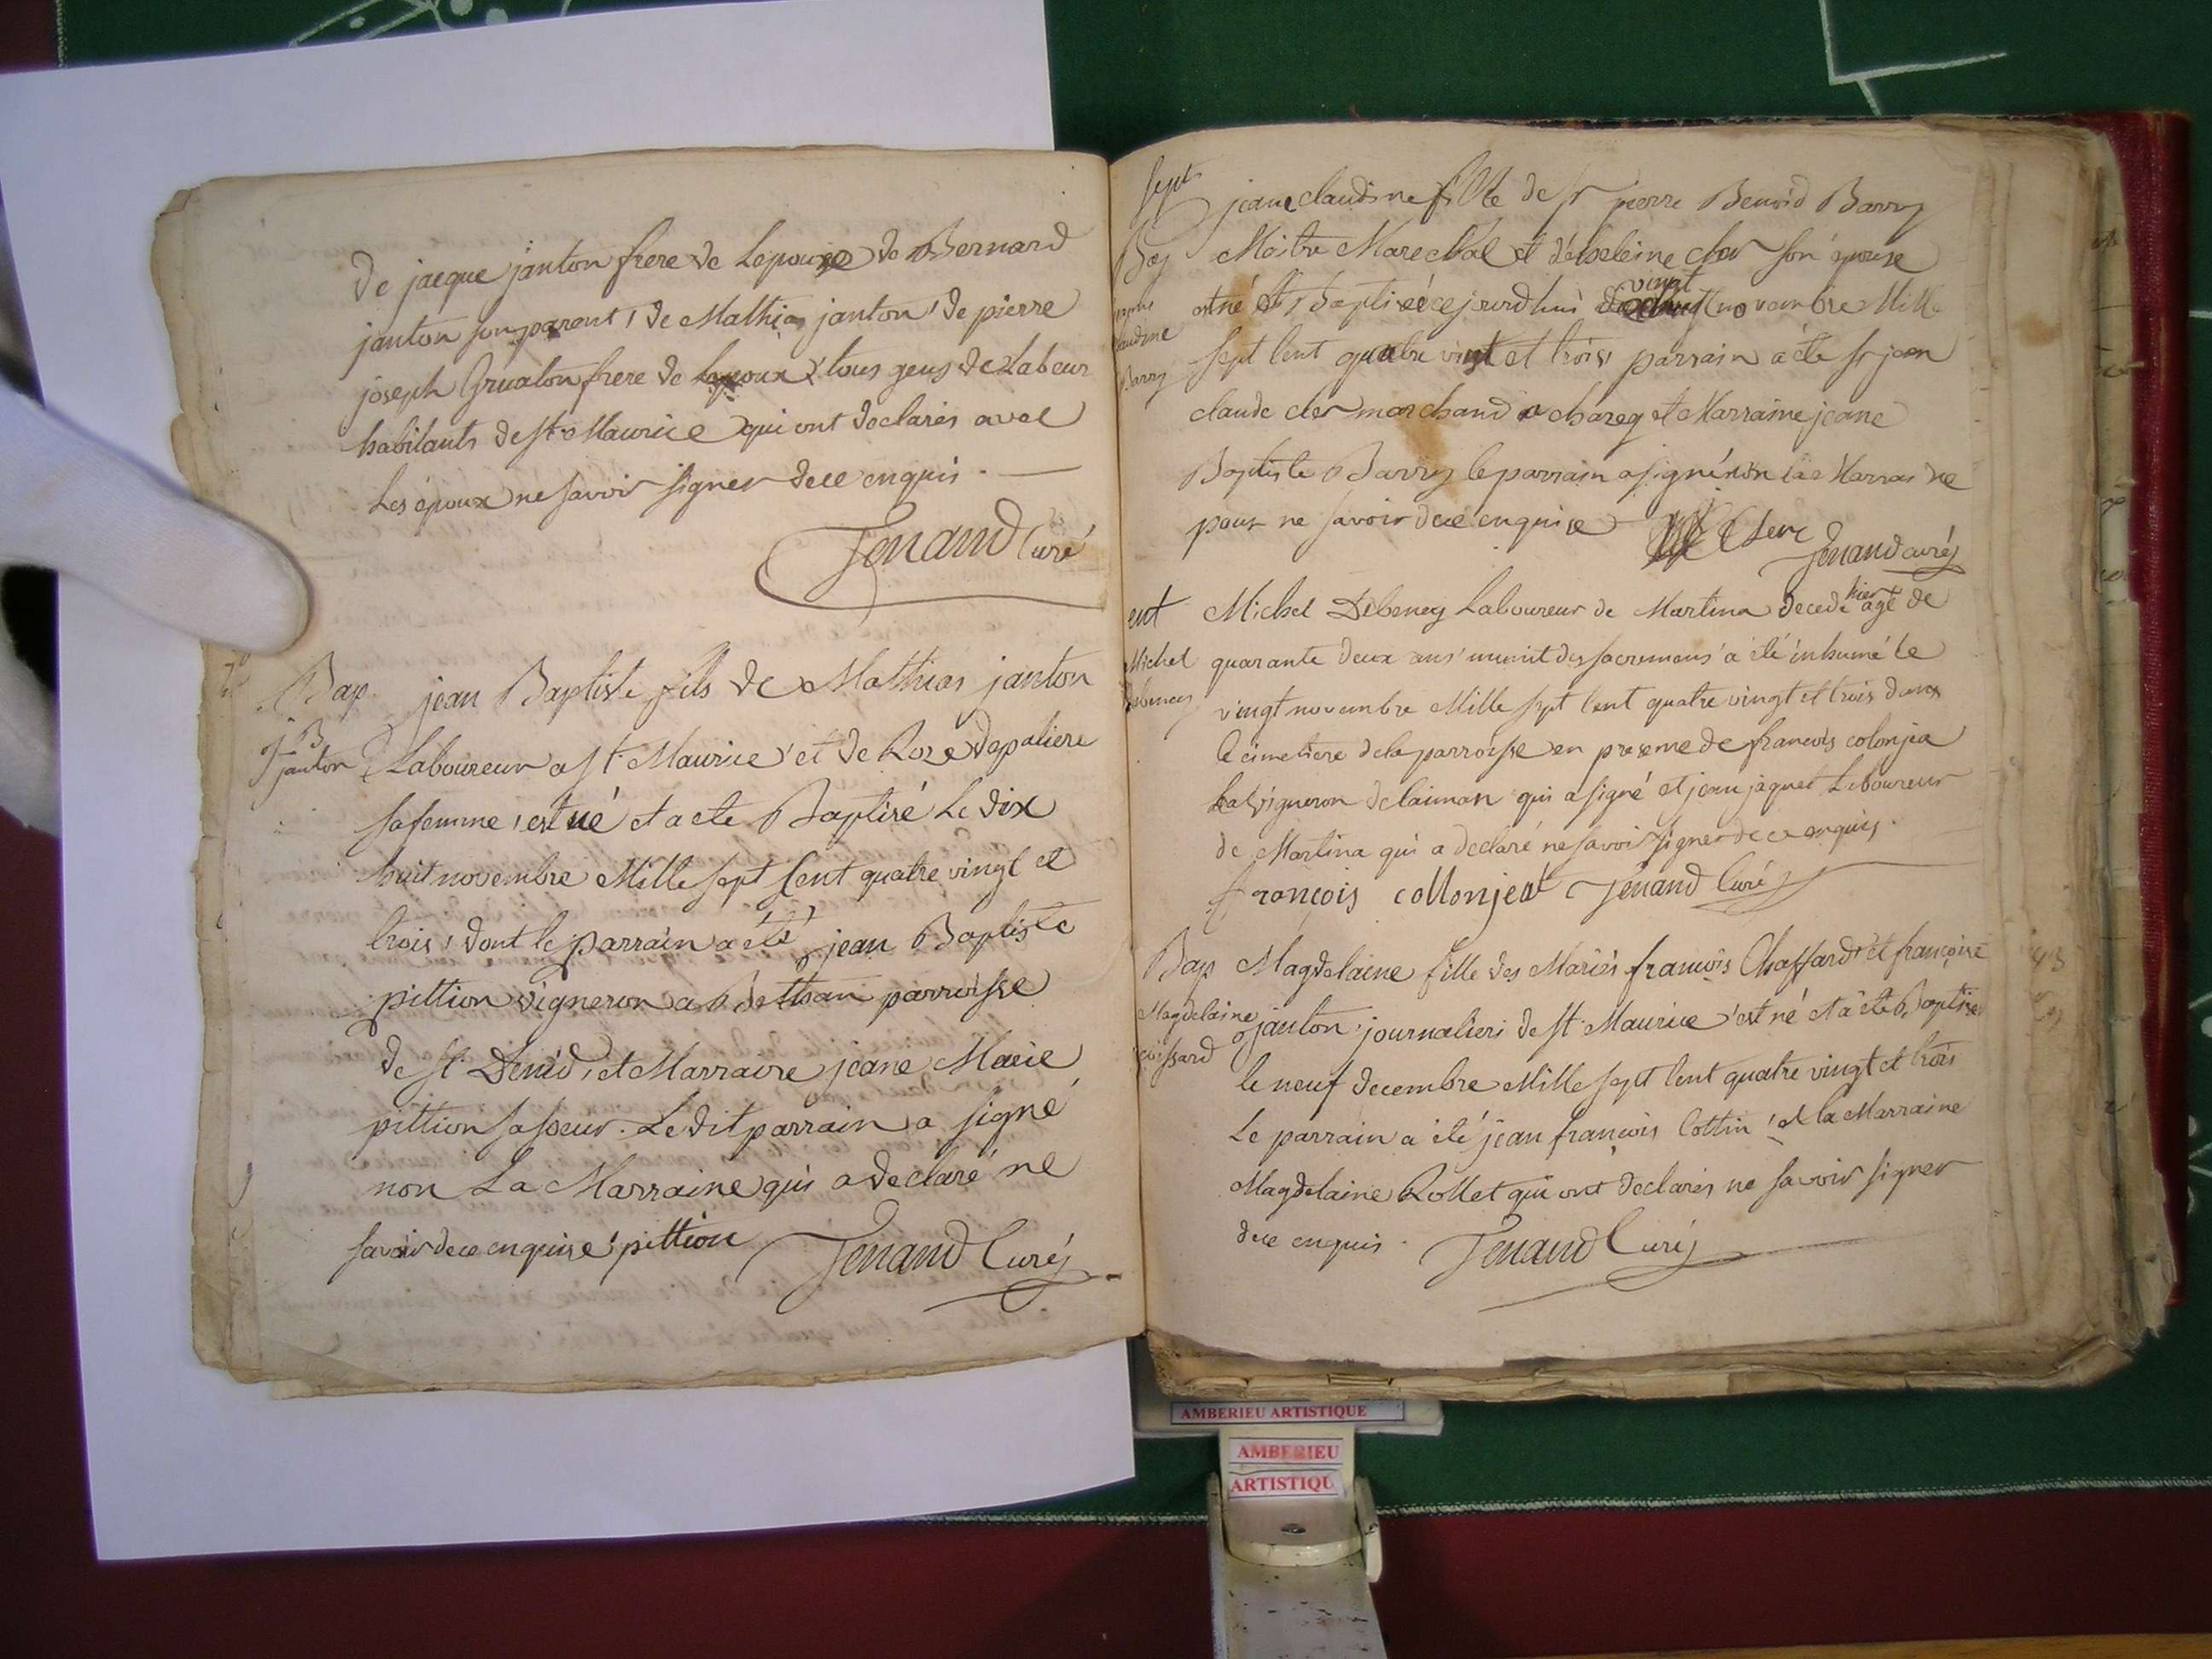 de jacque janton frere de Lepouse de Bernard
janton son parent, de Mathias janton, de pierre
joseph Grualon frere de Lepoux, tous gens de Labeur
habitants de st Maurice qui ont declarés avec
Les époux ne savoir signer de ce enquis.
Jenand Curé
Bap
J B
janton
jean Baptiste fils de Mathias janton
Laboureur a st Maurice et de Roze depaliere
sa femme, est né et a ete Baptisé Le dix
huit novembre Mille sept Cent quatre vingt et
trois, dont le parrain a été jean Baptiste
pittion vigneron a parroisse
de st Denid, et Marraire jeane Marie
pittion sa soeur. Le dit parrain a signé
non La Marraine qui a declaré ne
savoir de ce enquise, pittion Jenand Curéz
sept
Bap
claudine
Barry
jeane claudine fille de sr pierre Benoid Barry
Maitre Marechal et d'heleine cler son épouse
est né et Baptiséé ce jourd'hui vingt novembre Mille
sept Cent quatre vingt et trois, parrain a été sr jean
claude cler marchand a charey et Marraine jeane
Baptiste Barry le parrain a signé non la Marraine
pour ne savoir de ce enquise Clerc Jenand curéz
ent
Michel
debeney
Michel Debeney Laboureur de Martina decedé hier agé de
quarante deux ans, munit des sacremens a été inhumé le
vingt novembre Mille sept Cent quatre vingt et trois dans
le cimetiere de la parroisse en presence de francois colonjea
vigneron de laiman qui a signé et jean jaquet Laboureur
de Martina qui a declaré ne savoir signer de ce enquis.
françois collonjeat Jenand Curéz
Bap
Magdelaine
Magdelaine fille des Mariés francois Chaffard et françoise
janton journaliers de st Maurice est né et a été Baptisé
le neuf decembre Mille sept Cent quatre vingt et trois
Le parrain a été jean francois Cottin, et la Marraine
Magdelaine Rollet qui ont declarés ne savoir signer
de ce enquis. Jenand Curéz
AMBERIEU ARTISTIQUE
AMBERIEU
ARTISTIQU